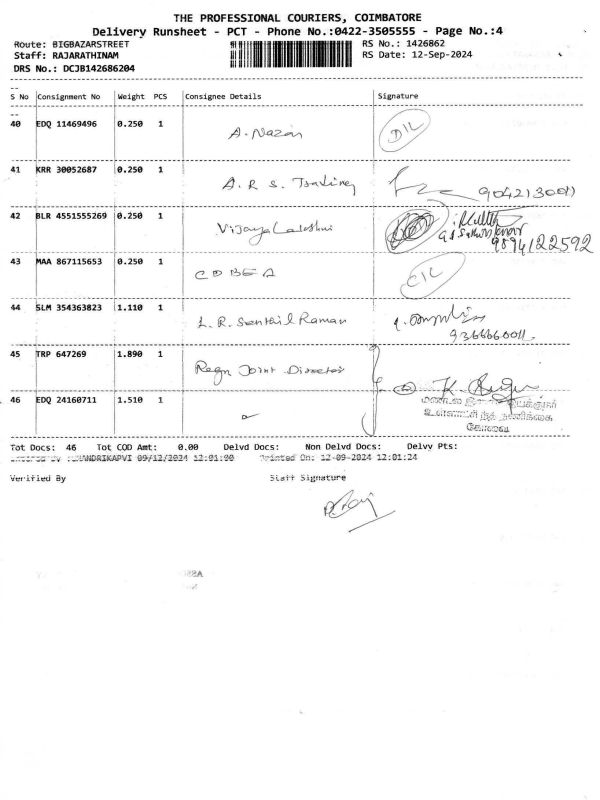 THE PROFESSIONAL COURIERS, COIMBATORE
Delivery Runsheet - PCT - Phone No.:0422-3505555 - Page No.:4
Route: BIGBAZARSTREET RS No.: 1426862
Staff: RAJARATHINAM RS Date: 12-Sep-2024
DRS No.: DCJB142686204
S No Consignment No Weight PCS Consignee Details Signature
40 EDQ 11469496 0.250 1 A. Nazar DIL
41 KRR 30052687 0.250 1 A. R. S. Trading 9042130011
42 BLR 4551555269 0.250 1 Vijaya Lakshmi 9894122592
43 MAA 867115653 0.250 1 C D B E A CIL
44 SLM 354363823 1.110 1 L. R. Senthil Raman 9366660011
45 TRP 647269 1.890 1 Regn Joint Director
46 EDQ 24160711 1.510 1 K.
உள்ளாட்சி நிதி தணிக்கை
கோவை
Tot Docs: 46 Tot COD Amt: 0.00 Delvd Docs: Non Delvd Docs: Delvy Pts:
09/12/2024 12:01:00 Printed On: 12-09-2024 12:01:24
Verified By Staff Signature